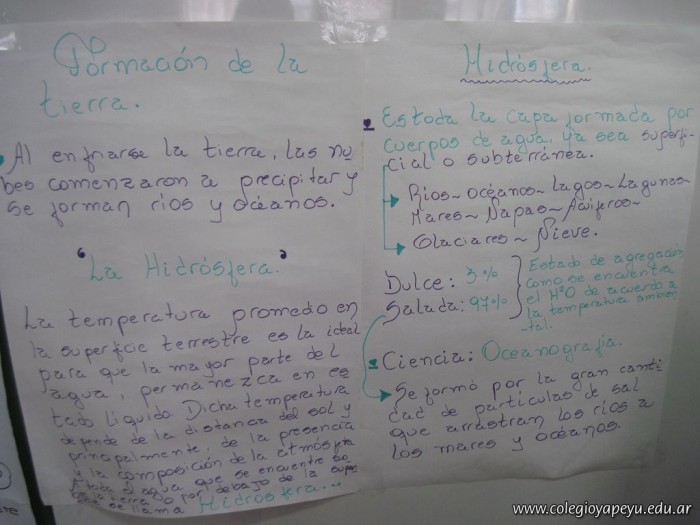 Formación de la
tierra.
Al enfriarse la tierra, las nu
bes comenzaron a precipitar y
se forman rios y océanos.
"La Hidrósfera."
La temperatura promedo en
la superficie terrestre es la ideal
para que la mayor parte del
agua, permanezca en es
tado liquido Dicha temperatura
depende de la distancia del sol y
principalmente, de la presencia
y la composición de la atmósfera
agua que se encuentre so
la tierra o por debajo de la supe
se llama Hidrósfera...
Hidrósfera.
Es toda la capa formada por
cuerpos de agua, ya sea superfi-
cial o subterránea.
Rios~océanos~Lagos~Lagunas
Mares~Napas~Acuiferos~
Glaciares~Nieve.
Dulce: 3%
Salada: 97%
Estado de agregación
como se encuentra
el H²O de acuerdo a
la temperatura ambien
tal.
Ciencia: Oceanografia.
Se formó por la gran canti
dad de particulas de sal
que arrastran los rios a
los mares y océanos.
www.colegioyapeyu.edu.ar